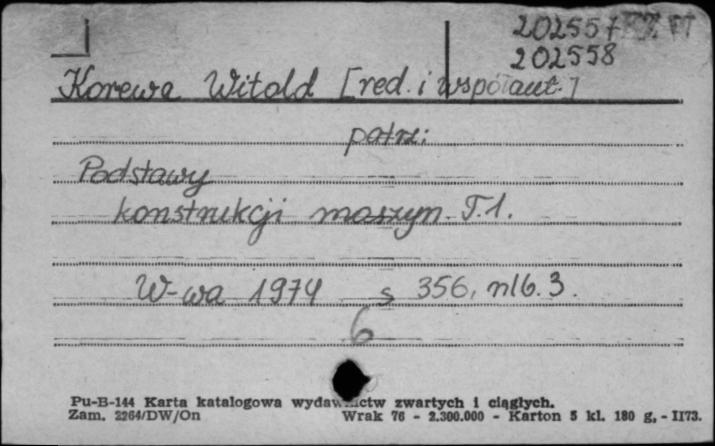 202557
202558
Korewa Witold [red. i współaut.]
patrz:
Podstawy
konstrukcji maszyn T.1.
W-wa 1974 s 356, nlb. 3.
6
Pu-B-144 Karta katalogowa wydawnictw zwartych i ciągłych.
Zam. 2264/DW/On Wrak 76 - 2.300.000 - Karton 5 kl. 180 g. - II73.